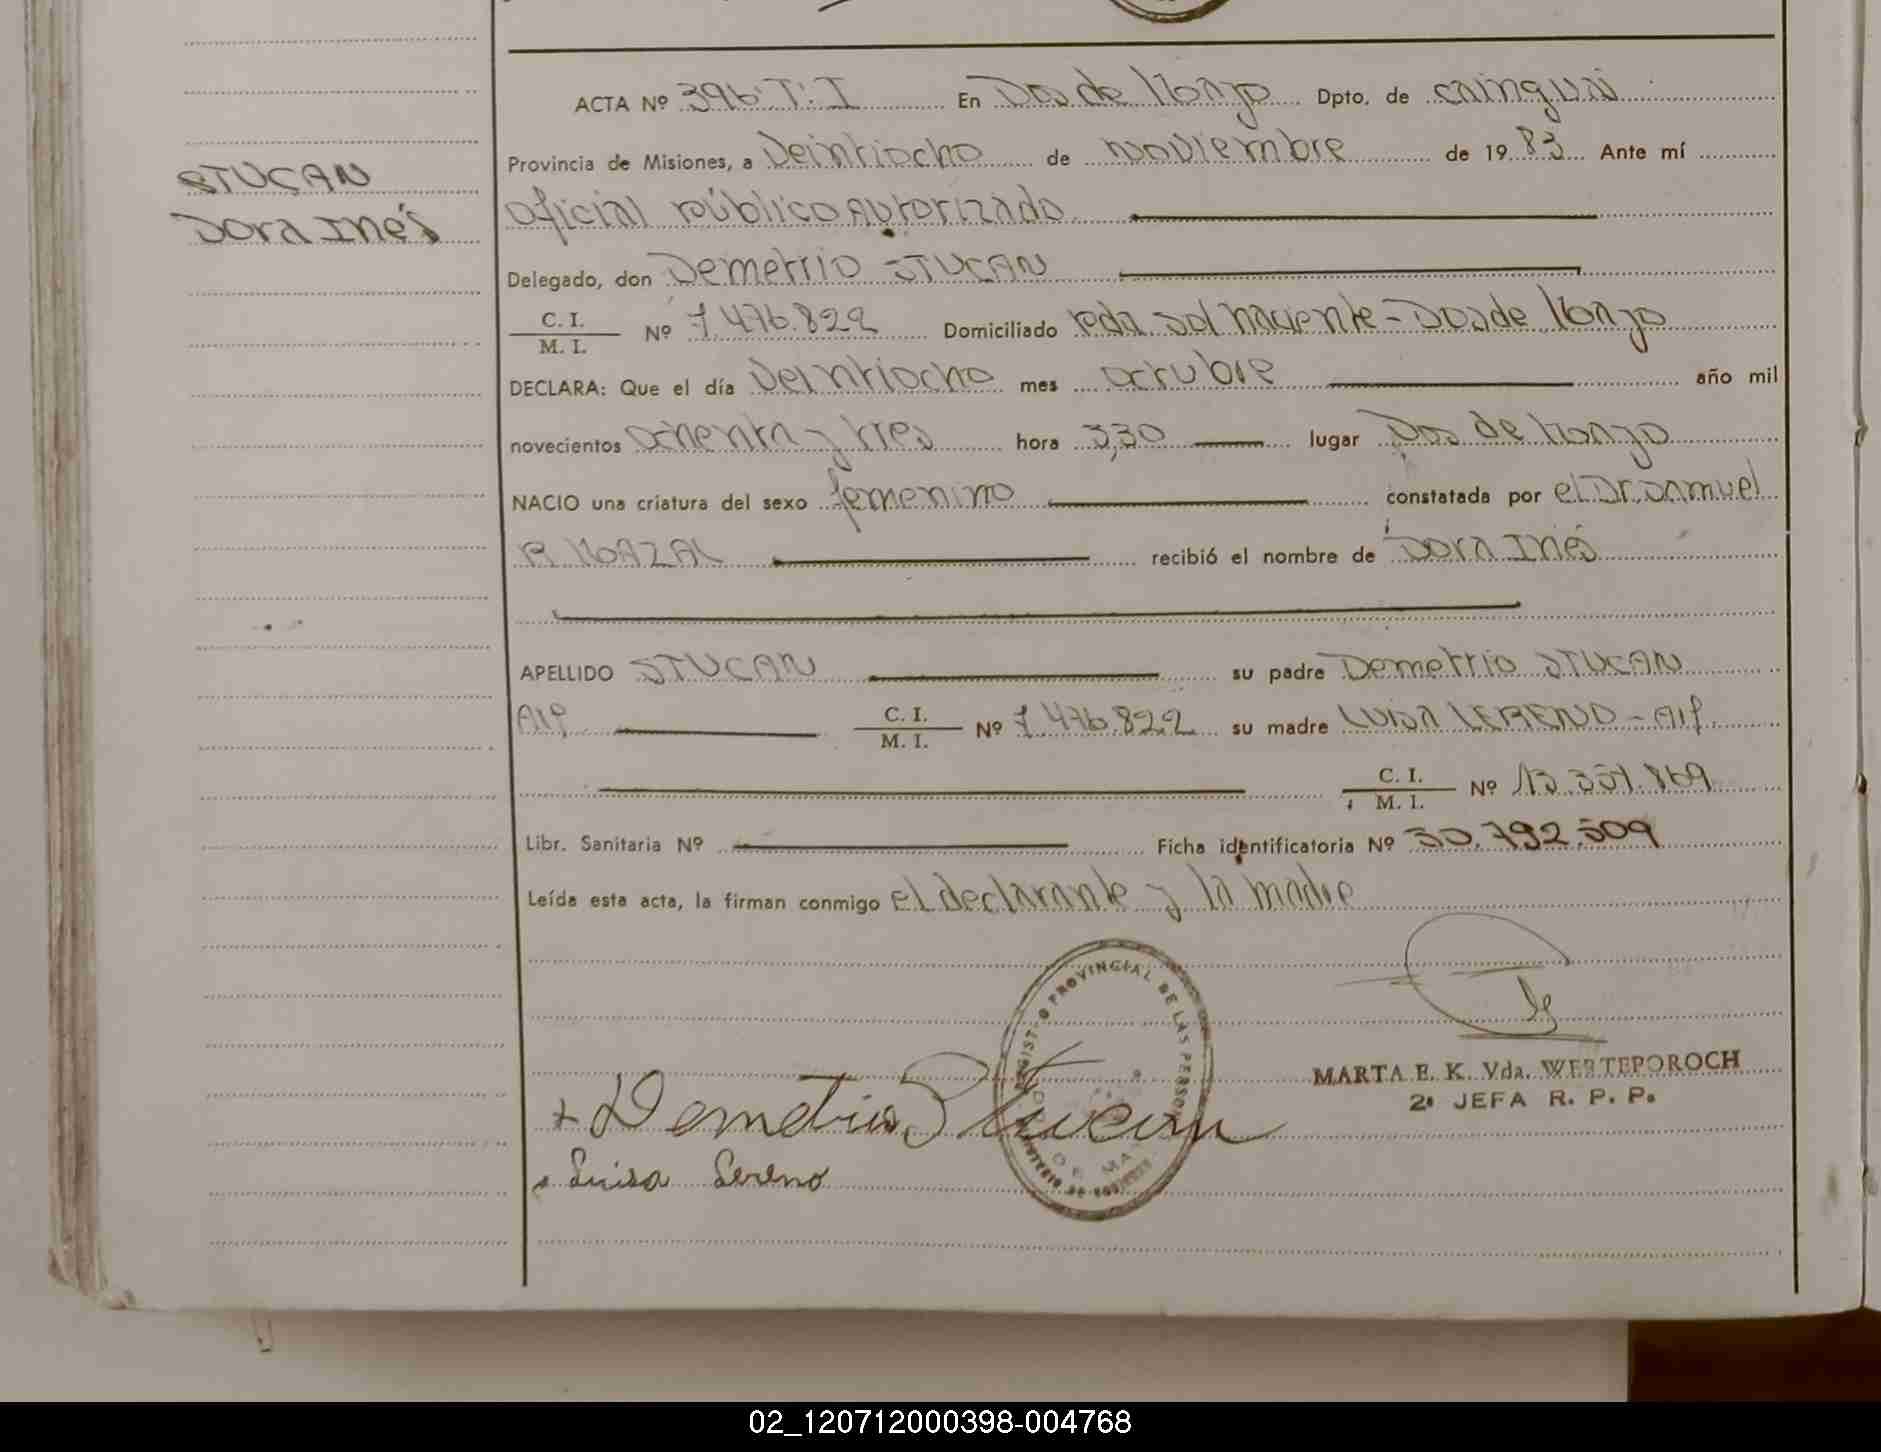 ACTA Nº 396 T. I En Dos de Mayo Dpto. de Cainguás
Provincia de Misiones, a Veintiocho de noviembre de 19 83 Ante mí
STUCAN
Oficial Público Autorizado
Dora Inés
Delegado, don Demetrio STUCAN
C. I.
M. I. Nº 7.476.822 Domiciliado Pda. Sol naciente - Dos de Mayo
DECLARA: Que el día Veintiocho mes octubre año mil
novecientos ochenta y tres hora 3,30 lugar Dos de Mayo
NACIO una criatura del sexo femenino constatada por el Dr. Samuel
recibió el nombre de Dora Inés
APELLIDO STUCAN su padre Demetrio STUCAN
C. I.
M. I. Nº 7.476.822 su madre LUISA SERENO
C. I.
M. I. Nº 13.351.869
Libr. Sanitaria Nº Ficha identificatoria Nº 30.792.509
Leída esta acta, la firman conmigo el declarante y la madre
PROVINCIAL DE LAS PERSON
MARTA E. K. Vda. WERTEPOROCH
2ª JEFA R. P. P.
Demetrio Stucan
Luisa Sereno
02_120712000398-004768